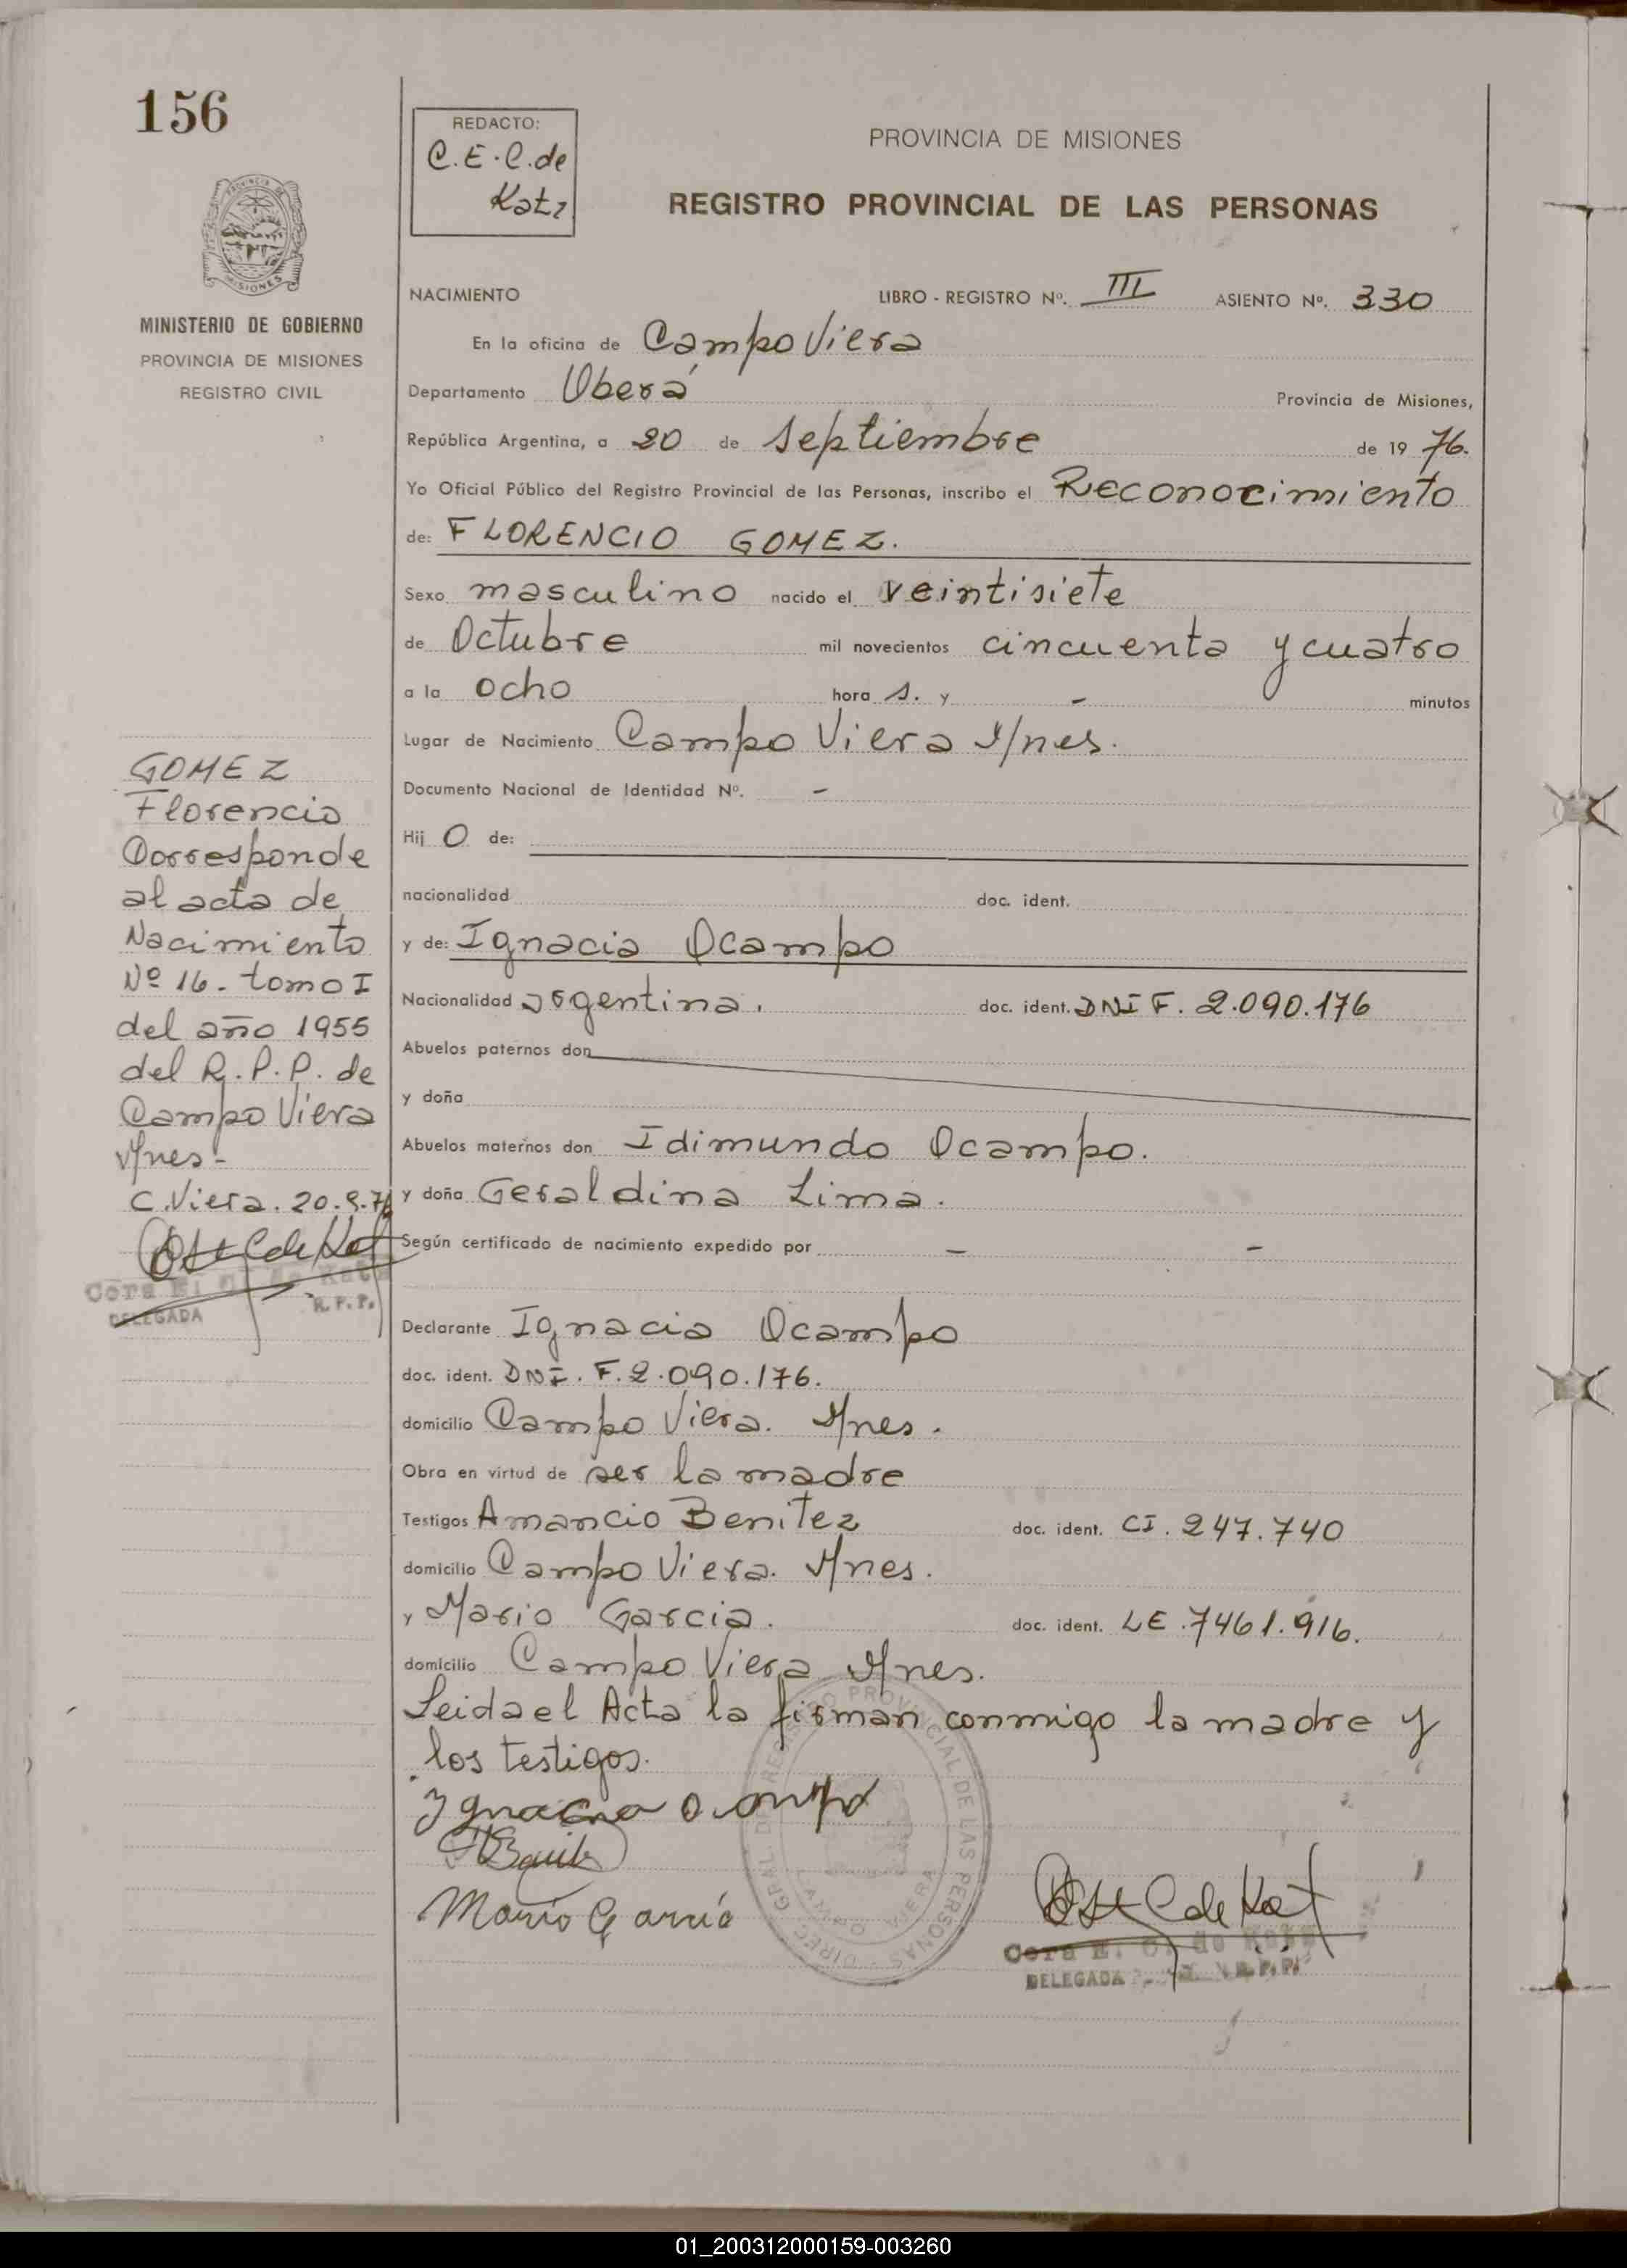 156
REDACTO:
C.E.C. de
Katz
PROVINCIA DE MISIONES
REGISTRO PROVINCIAL DE LAS PERSONAS
MINISTERIO DE GOBIERNO
PROVINCIA DE MISIONES
REGISTRO CIVIL
NACIMIENTO LIBRO - REGISTRO Nº. III ASIENTO Nº. 330
En la oficina de Campo Viera
Departamento Oberá Provincia de Misiones,
República Argentina, a 20 de Septiembre de 19 76.
Yo Oficial Público del Registro Provincial de las Personas, inscribo el Reconocimiento
de: FLORENCIO GOMEZ.
Sexo masculino nacido el veintisiete
de Octubre mil novecientos cincuenta y cuatro
a la ocho hora s. y - minutos
Lugar de Nacimiento Campo Viera Ynés.
Documento Nacional de Identidad Nº. -
Hij o de:
nacionalidad doc. ident.
y de: Ignacia Ocampo
Nacionalidad argentina. doc. ident. DNI F. 2.090.176
Abuelos paternos don
y doña
Abuelos maternos don Idimundo Ocampo.
y doña Geraldina Lima.
Según certificado de nacimiento expedido por - -
Declarante Ignacia Ocampo
doc. ident. DNI. F. 2.090.176.
domicilio Campo Viera. Ynes.
Obra en virtud de ser la madre
Testigos Amancio Benitez doc. ident. CI. 247.740
domicilio Campo Viera. Ynes.
y Mario Garcia. doc. ident. LE. 7461.916.
domicilio Campo Viera Ynes.
Leida el Acta la firman conmigo la madre y
los testigos.
Ygnacia Ocampo
Mario Garcia
Cora E. C. de Katz
DELEGADA R.P.P.
DIREC. GRAL. DE REGISTRO PROVINCIAL DE LAS PERSONAS
CAMPO VIERA
GOMEZ
Florencio
Corresponde
al acta de
Nacimiento
Nº 16. tomo I
del año 1955
del R.P.P. de
Campo Viera
Ynes-
C. Viera. 20.9.76
Cora E. C. de Katz
DELEGADA R.P.P.
01_200312000159-003260